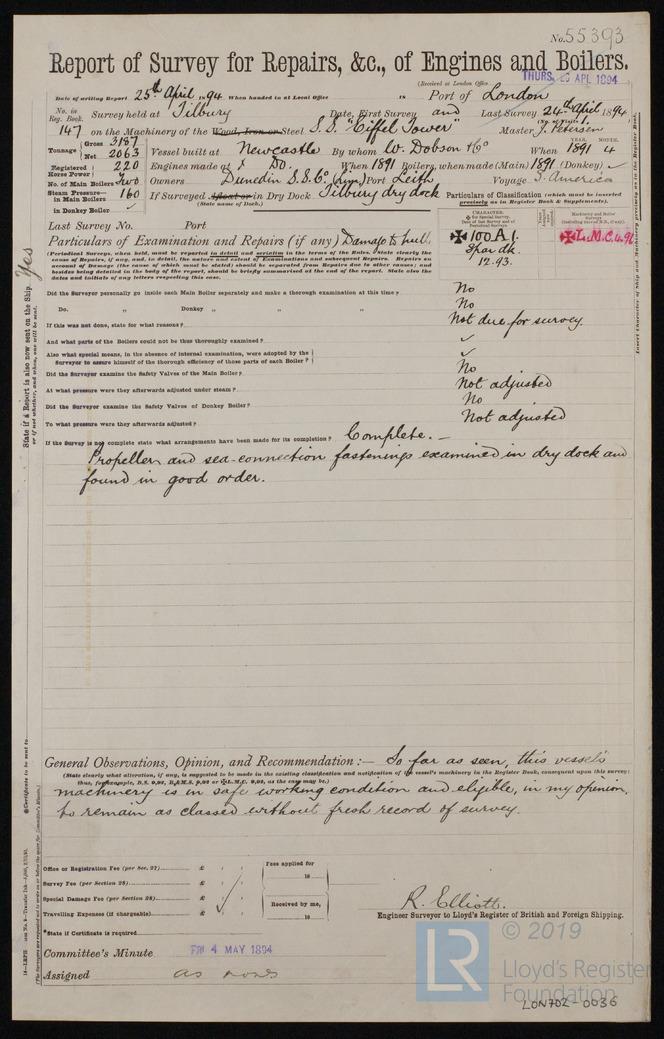 No. 55393
Report of Survey for Repairs, &c., of Engines and Boilers.
(Received at London Office THURS. 26 APL 1894)
Date of writing Report 25th April 1894 When handed in at Local Office 18 Port of London
No. in Reg. Book. Survey held at Tilbury Date, First Survey and Last Survey 24th April 1894
(No. of Visits 1.)
147 on the Machinery of the Wood, Iron or Steel S.S. "Eiffel Tower" Master J. Petersen
Tonnage Gross 3187 Net 2063
Vessel built at Newcastle By whom W. Dobson & Co When 1891 4
YEAR. MONTH.
Registered Horse Power 220 Engines made at Do. When 1891 Boilers, when made (Main) 1891 (Donkey) ✓
No. of Main Boilers Two Owners Dunedin S.S. Co. (Lim.) Port Leith Voyage S. America
Steam Pressure— in Main Boilers 160 If Surveyed Afloat or in Dry Dock Tilbury dry dock
(State name of Dock.)
in Donkey Boiler ✓
Particulars of Classification (which must be inserted precisely as in Register Book & Supplements).
Last Survey No. Port
CHARACTER.
Machinery and Boiler Surveys
✠ 100 A 1.
Spar dk
12.93.
✠ L.M.C. 4.91
Particulars of Examination and Repairs (if any) Damage to hull.
(Periodical Surveys, when held, must be reported in detail and seriatim in the terms of the Rules. State clearly the
cause of Repairs, if any, and, in detail, the nature and extent of Examinations and subsequent Repairs. Repairs on
account of Damage (the cause of which must be stated) should be separated from Repairs due to other causes; and
besides being detailed in the body of the report, should be briefly summarised at the end of the report. State also the
dates and initials of any letters respecting this case.
Did the Surveyor personally go inside each Main Boiler separately and make a thorough examination at this time? No
Do. „ Donkey „ „ „ No
If this was not done, state for what reasons? Not due for survey.
And what parts of the Boilers could not be thoroughly examined? ✓
Also what special means, in the absence of internal examination, were adopted by the
Surveyor to assure himself of the thorough efficiency of those parts of each Boiler? ✓
Did the Surveyor examine the Safety Valves of the Main Boiler? No
At what pressure were they afterwards adjusted under steam? Not adjusted
Did the Surveyor examine the Safety Valves of Donkey Boiler? No
To what pressure were they afterwards adjusted? Not adjusted
If the Survey is not complete state what arrangements have been made for its completion? Complete. —
Propeller and sea-connection fastenings examined in dry dock and
found in good order.
State if a Report is also now sent on the Ship. Yes
or if not whether, and when, one will be sent.
Insert Character of Ship and Machinery precisely as in the Register Book.
General Observations, Opinion, and Recommendation :— So far as seen, this vessel's
(State clearly what alteration, if any, is suggested to be made in the existing classification and notification of the vessel's machinery in the Register Book, consequent upon this survey:
machinery is in safe working condition and eligible, in my opinion,
to remain as classed without fresh record of survey.
Office or Registration Fee (per Sec. 27) £ Fees applied for
18
Survey Fee (per Section 28) £
Special Damage Fee (per Section 28) £ Received by me,
Travelling Expenses (if chargeable) £ 18
R. Elliott.
Engineer Surveyor to Lloyd's Register of British and Foreign Shipping.
*State if Certificate is required
Committee's Minute FRI 4 MAY 1894
Assigned as now
*Certificate to be sent to
LR © 2019
Lloyd's Register
Foundation
LON702-0036